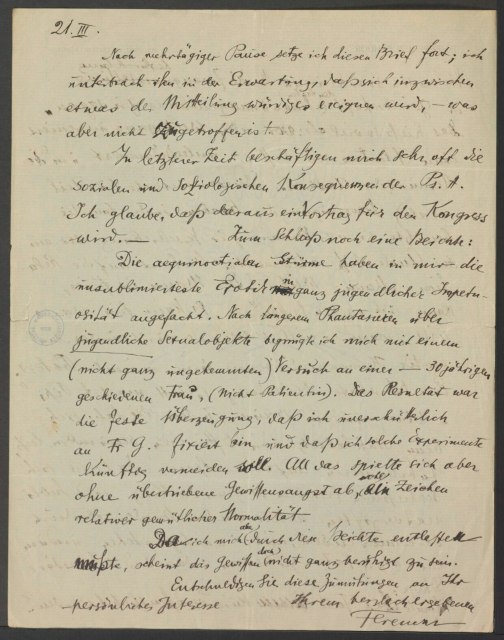 21. III.
Nach mehrtägiger Pause setze ich diesen Brief fort; ich
unterbrach ihn in der Erwartung, daß sich inzwischen
etwas der Mitteilung würdiges ereignen wird, – was
aber nicht zugetroffen ist.
In letzterer Zeit beschäftigen mich sehr oft die
sozialen und soziologischen Konsequenzen der Ps. A.
Ich glaube, daß daraus ein Vortrag für den Kongress
wird. — Zum Schluß noch eine Beichte:
Die aequinoctialen Stürme haben in mir die
unsublimierteste Erotik in ganz jugendlicher Impetu-
osität angefacht. Nach längerem Phantasieren über
jugendliche Sexualobjekte begnügte ich mich mit einem
(nicht ganz ungehemmten) Versuch an einer — 30 jährigen
geschiedenen Frau, (nicht Patientin). Das Resultat war
die feste Überzeugung, daß ich unerschütterlich
an Fr G. fixiert bin und daß ich solche Experimente
künftig vermeiden soll. All das spielte sich aber
ohne übertriebene Gewissensangst ab, wohl ein Zeichen
relativer gemütlicher Normalität.
Da ich mich aber durch den Beichte entlasten
mußte, scheint das Gewissen doch nicht ganz beruhigt zu sein.
Entschuldigen Sie diese Zumutungen an Ihr
persönliches Interesse Ihrem herzlich ergebenen
Ferenczi